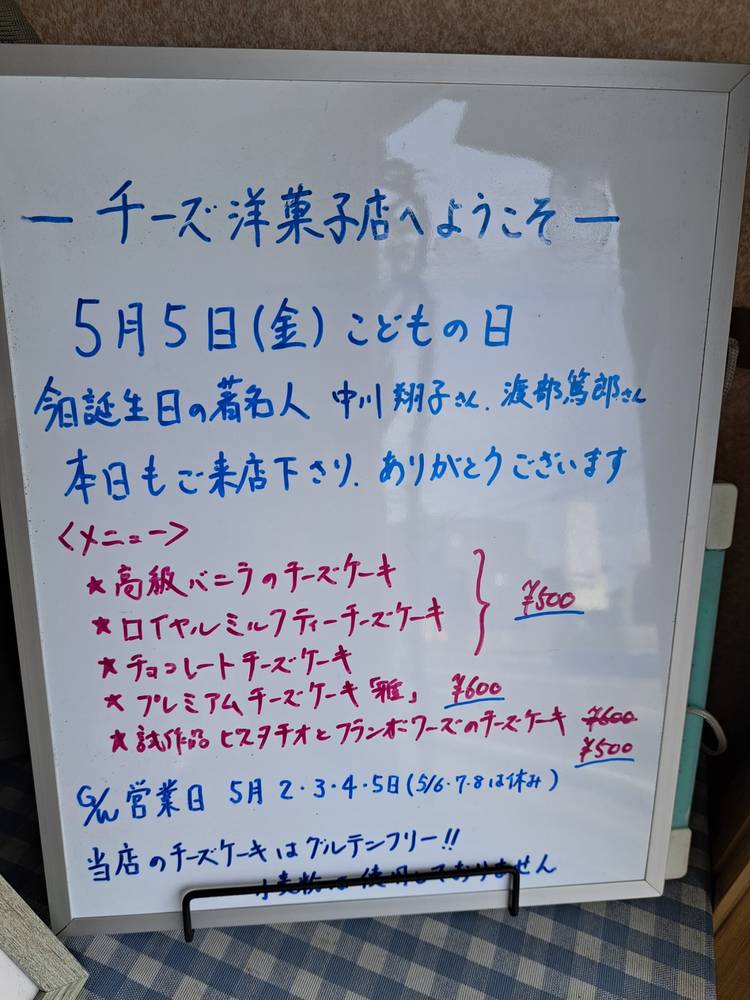 ーチーズ洋菓子店へようこそー
5月5日(金)こどもの日
今日誕生日の著名人 中川翔子さん、渡部篤郎さん
本日もご来店下さり、ありがとうございます
<メニュー>
★高級バニラのチーズケーキ
★ロイヤルミルクティーチーズケーキ
¥500
★チョコレートチーズケーキ
★プレミアムチーズケーキ「雅」 ¥600
★試作品 ピスタチオとフランボワーズのチーズケーキ ¥600
¥500
G/W営業日 5月 2・3・4・5日(5/6・7・8は休み)
当店のチーズケーキはグルテンフリー!!
小麦粉は使用しておりません